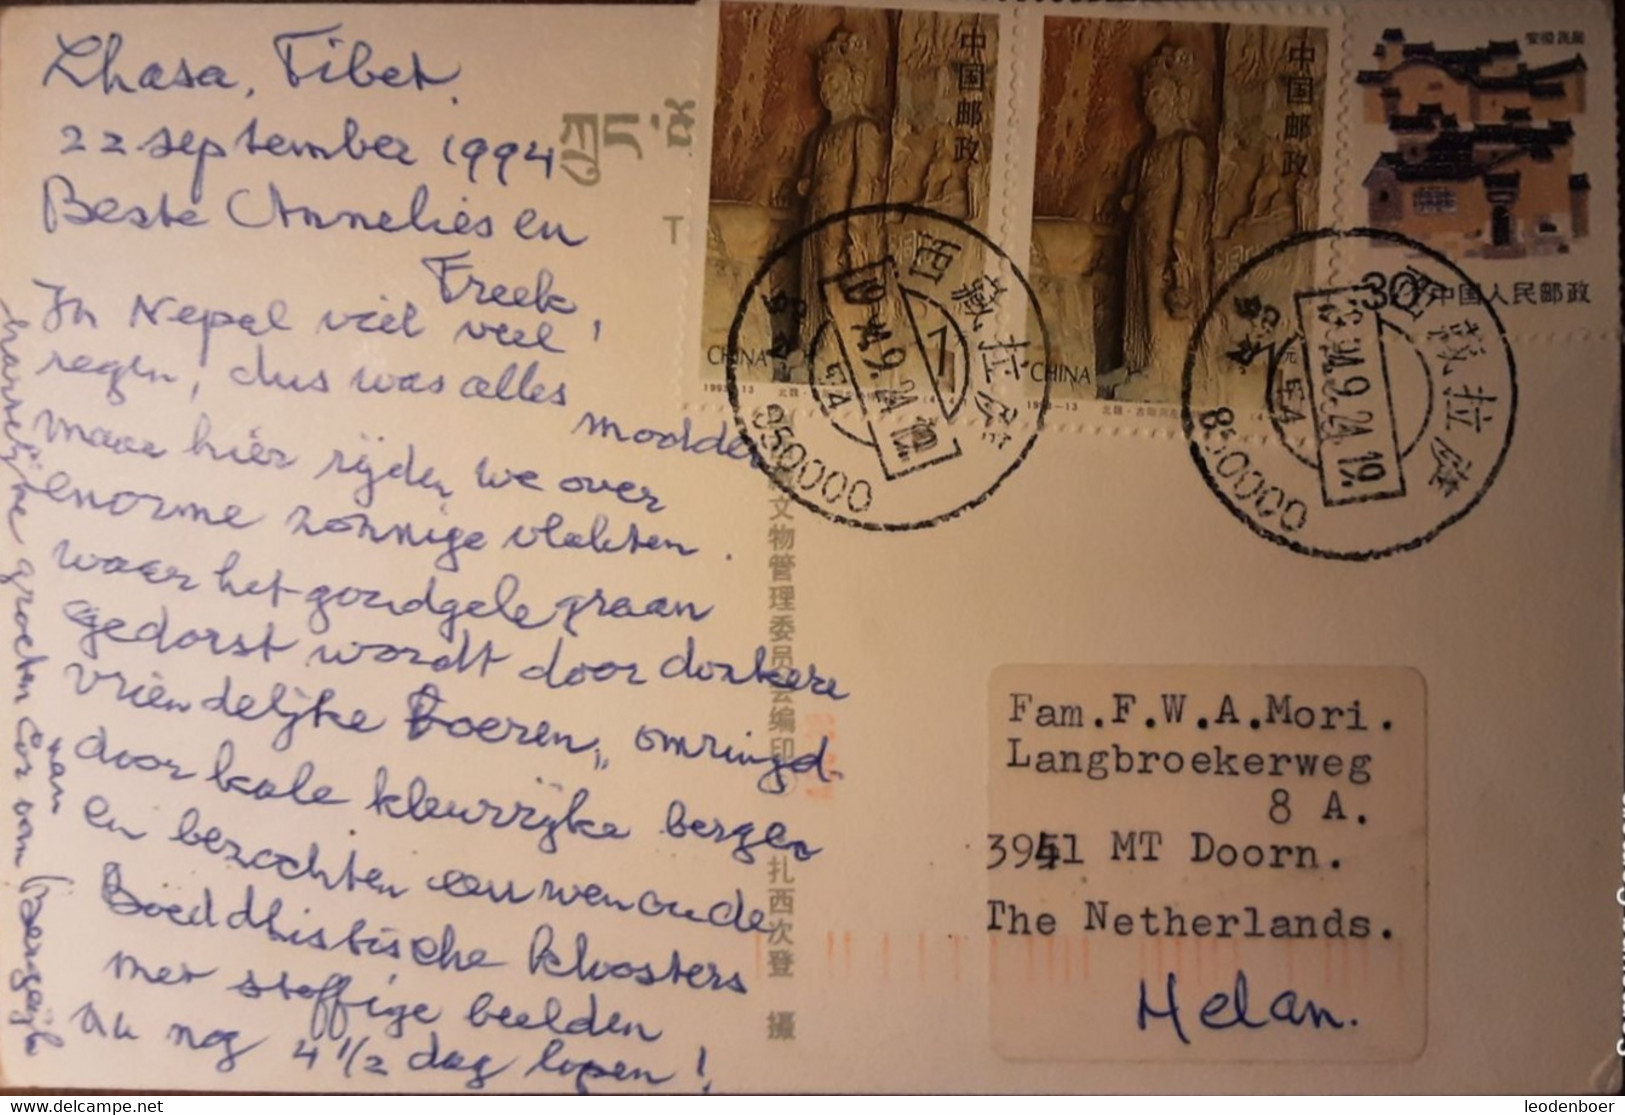 Lhasa, Tibet.
22 september 1994
Beste Annelies en
Freek,
In Nepal viel veel
regen, dus was alles
modder
maar hier rijden we over
enorme zonnige vlakten.
waar het goudgele graan
gedorst wordt door donkere
vriendelijke boeren, omringd
door kale kleurrijke bergen
en bezochten eeuwenoude
Boeddhistische kloosters
met stoffige beelden
nu nog 4 1/2 dag lopen!
hartelijke groeten
van
中国邮政
CHINA
1993-13
中国邮政
CHINA
1993-13
安徽民居
30分 中国人民邮政
西藏拉萨
94.9.24.19
850000
西藏拉萨
94.9.24.19.
850000
文物管理委员会编印
扎西次登 摄
Fam.F.W.A.Mori.
Langbroekerweg
8 A.
3941 MT Doorn.
The Netherlands.
Helan.
leodenboer